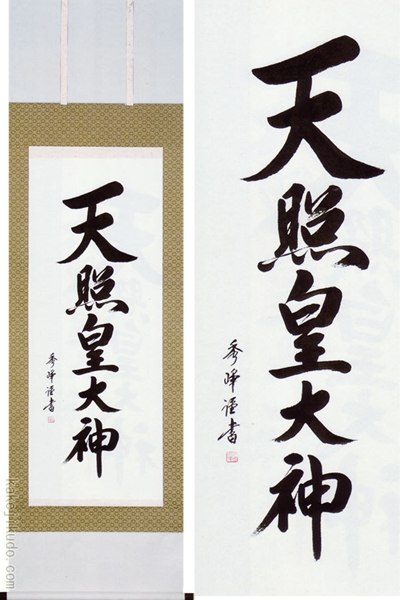 天照皇大神
秀峰謹書
天照皇大神
秀峰謹書